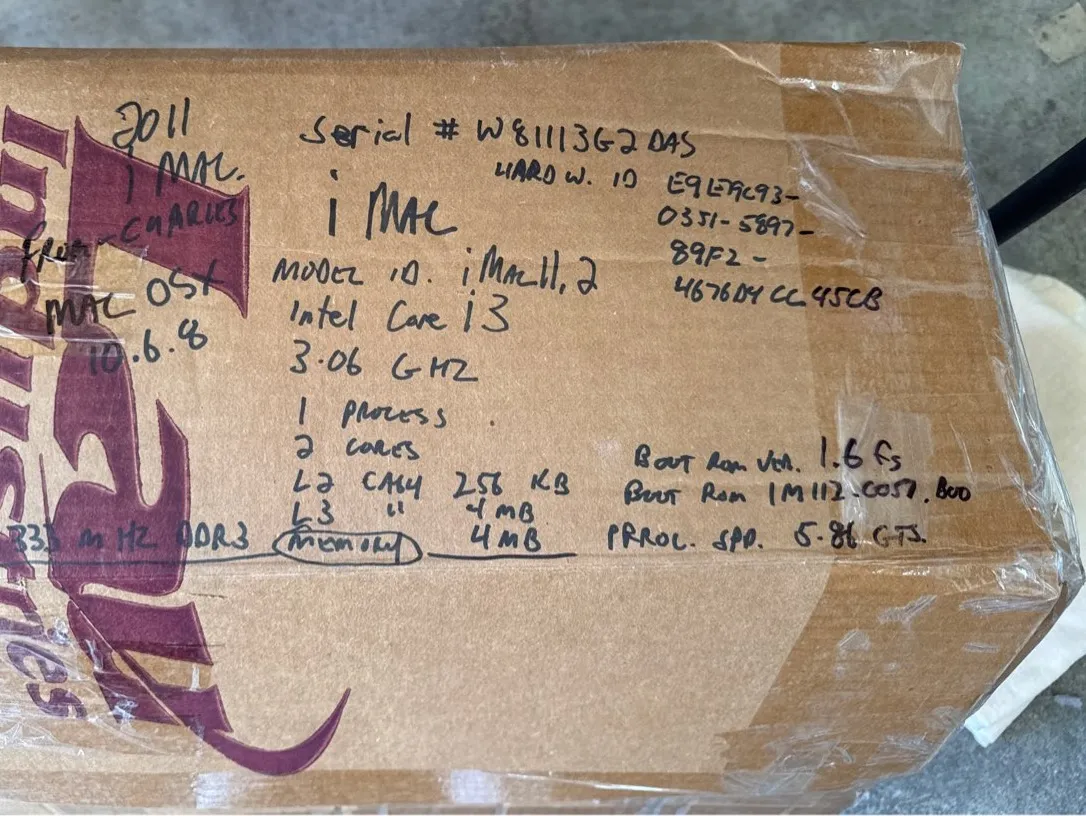 2011
i MAC.
from - CHARLES
MAC OSX
10.6.8
Serial # W81113G2DAS
HARD W. ID E9E79C93-
0351-5897-
89F2-
4676D4CC45CB
i MAC
MODEL ID. iMac11,2
Intel Core i3
3.06 GHZ
1 PROCESS
2 CORES
L2 CACH 256 KB
L3 " 4 MB
333 MHZ DDR3 memory 4 MB
BOOT ROM VER. 1.6 f5
BOOT ROM IM112-0057.B00
PRROC. SPD. 5.86 GTS.